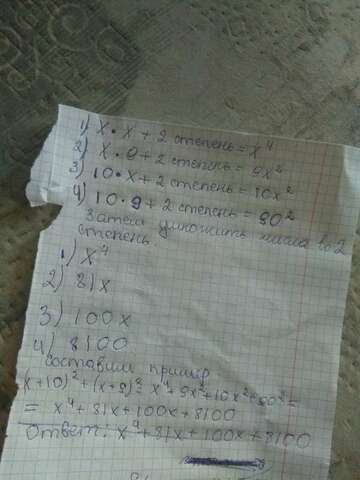 1) x • x + 2 степень = x⁴
2) x • 9 + 2 степень = 9x²
3) 10 • x + 2 степень = 10x²
4) 10 • 9 + 2 степень = 90²
Затем умножить числа во 2
степень.
1) x⁴
2) 81x
3) 100x
4) 8100
составим пример
(x+10)² + (x+9)² x⁴ + 9x² + 10x² + 90² =
= x⁴ + 81x + 100x + 8100
Ответ: x⁴ + 81x + 100x + 8100